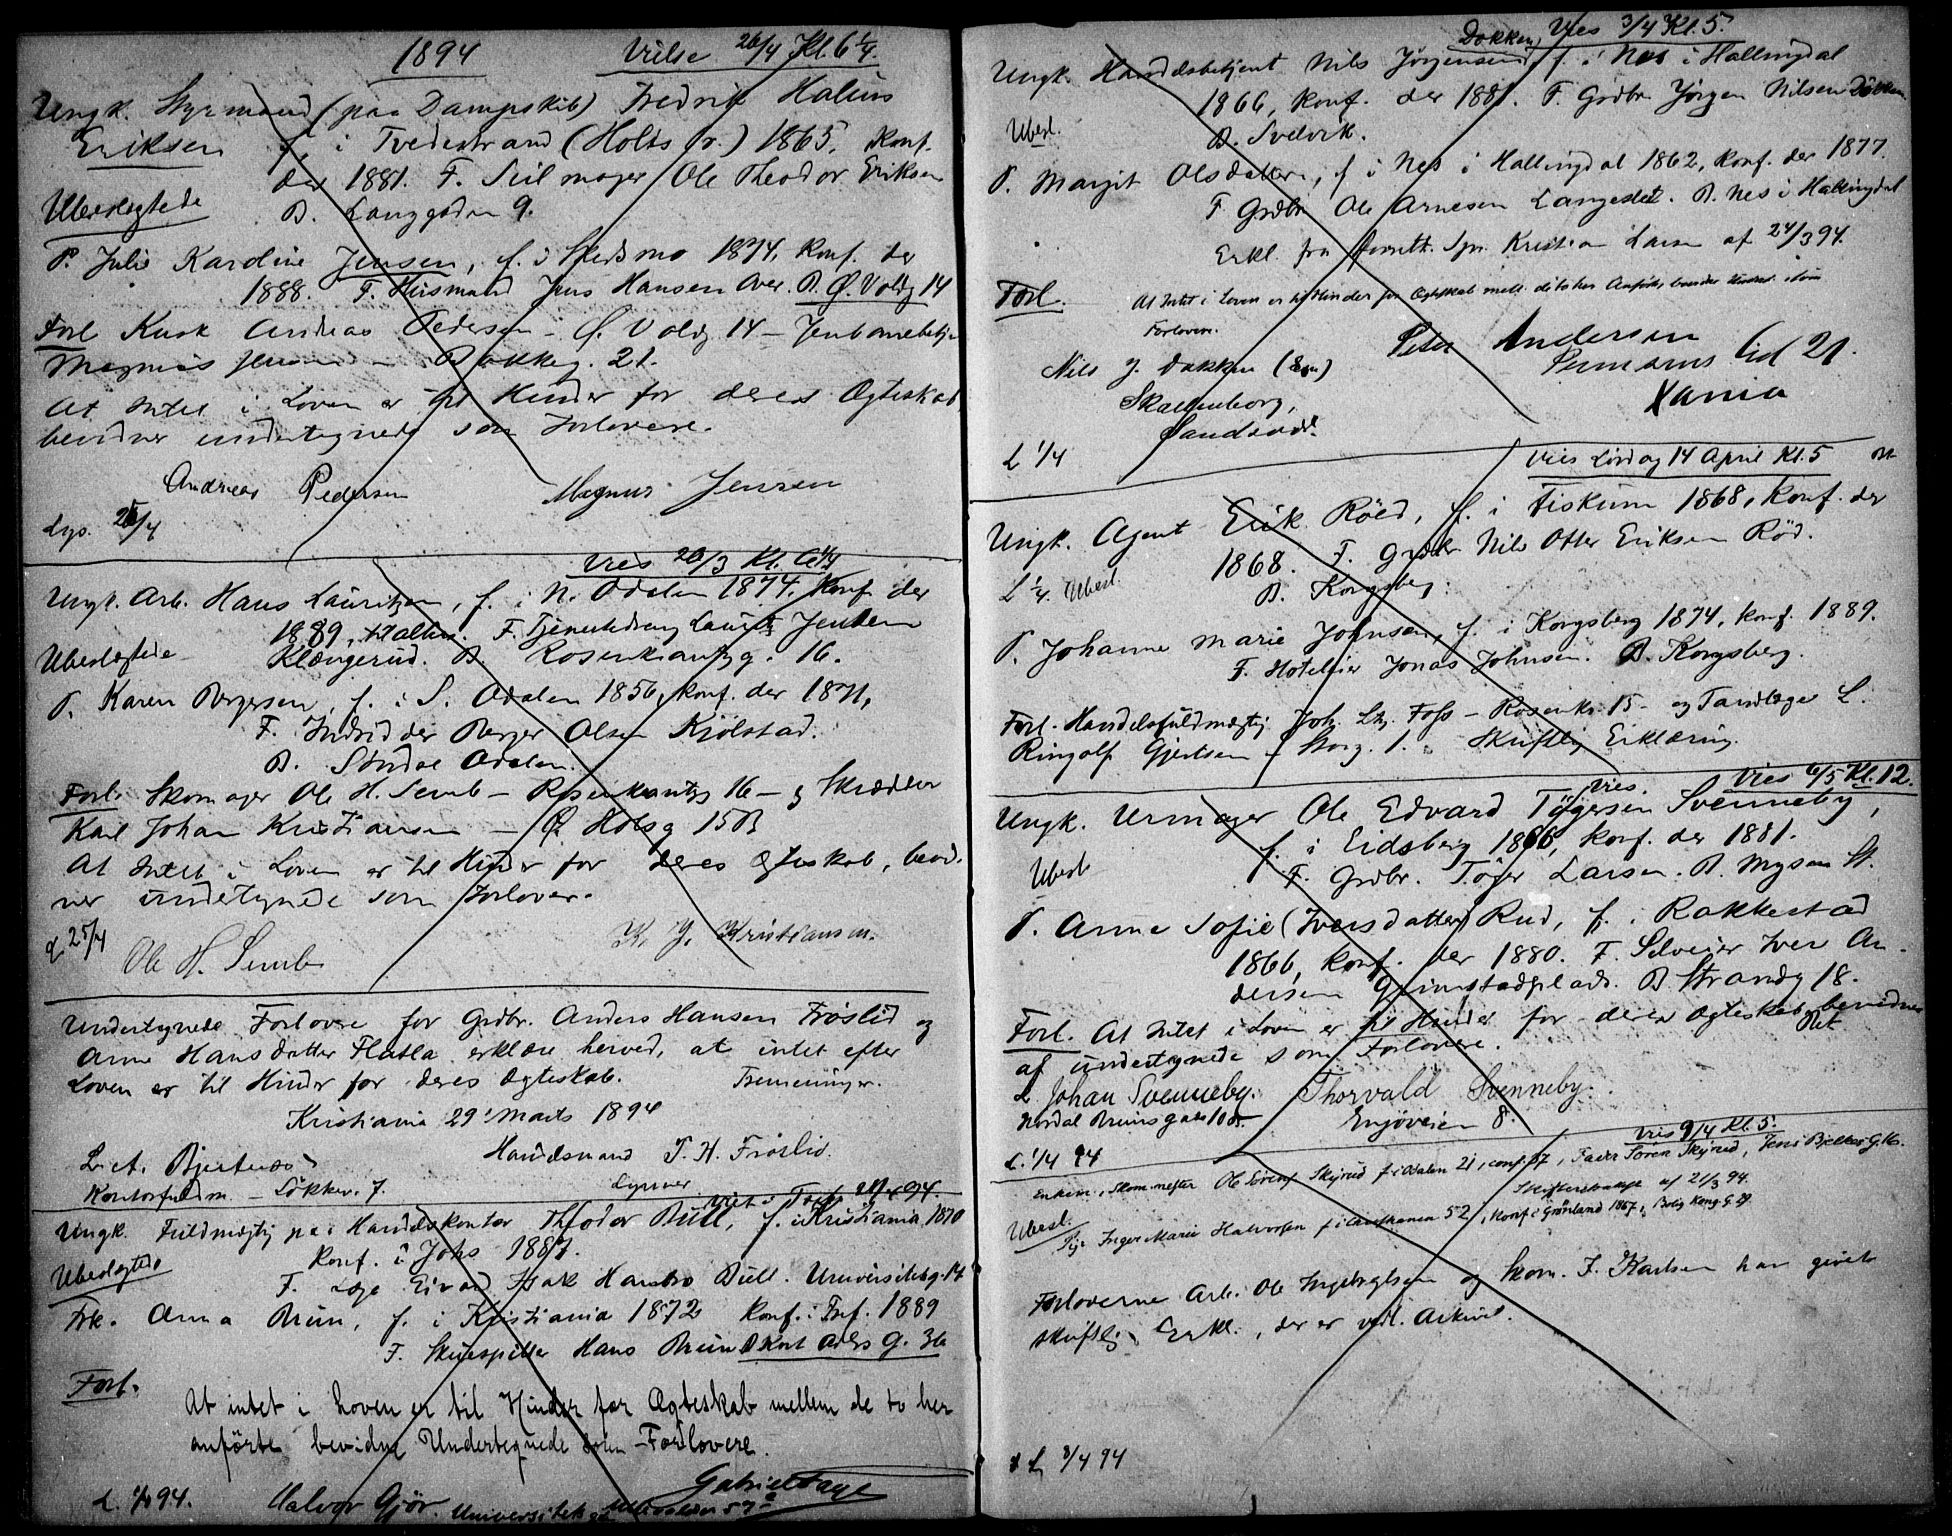 1894 Vielse 26/4 Kl. 6 1/4.
Ungk. Styrmand (paa Dampskib) Fredrik
Eriksen f. i Tvedestrand (Holts Pr.) 1865, Konf.
der 1881. F. Seilmager Ole Theodor Eriksen
Ubeslægtede B. Langgaden 9.
P. Julie Karoline Jensen, f. i Skedsmo 1874, Konf. der
1888. F. Husmand Jens Hansen B. Ø. Voldg 14
Forl Kusk Andreas Pedersen - Ø. Voldg 14 - Jernbanebetj.
Magnus Jensen - Bakkeg. 21.
At Intet i Loven er til Hinder for deres Ægteskab
bevidner undertegnede som Forlovere.
Andreas Pedersen Magnus Jensen
Lys. 25/4
Vies 26/3 Kl.
Ungk. Arb. Hans Lauritzen, f. i N. Odalen 1874, Konf der
1889, F. Tjenestedreng Laurits Jensen
Ubeslægtede Klængerud. B. Rosenkrantzg. 16.
P. Karen Bergersen, f. i S. Odalen 1856, konf. der 1871,
F. Inderst der Berger Olsen Kjølstad.
B. Søndre Odalen.
Forl. Skomager Ole H. Semb - Rosenkrantzg 16 - og Skrædder
Karl Johan Kristiansen - Ø. Holsg 15B
At Intet i Loven er til Hinder for deres Ægteskab, bevid-
ner undertegnede som Forlovere.
L 25/4 Ole H. Semb K. J. Kristiansen.
Undertegnede Forlovere for Grdbr. Anders Hansen Frøslid og
Anne Hansdatter Flatla erklære herved, at intet efter
Loven er til Hinder for deres Ægteskab. Tremeninger.
Kristiania 29' Marts 1894
Handelsmand P. H. Frøslid.
Kontorfuldm. - Løkkev. 7.
Ungk. Fuldmægtig paa Handelskontor Theodor Bull, f. i Kristiania 1870
Konf. i Johs 1887.
Ubeslægtede F. Læge Eivad Isak Hambro Bull. Universitetsg. 14
Frk. Anna Brun, f. i Kristiania 1872 Konf. i Trf. 1889
F. Skuespiller Hans Brun B Kort Adlers G. 36
Forl.
At intet i Loven er til Hinder for Ægteskab mellem de to her
anførte bevidne Undertegnede som Forlovere.
L. 94. Halvor Gjør.
Dokken, Vies 3/4 Kl. 5.
Ungk. Handelsbetjent Nils Jørgensen f. i Nes i Hallingdal
1866, konf. der 1881. F. Grdbr Jørgen Nilsen Dokken
Ubesl. B. Svelvik.
P. Margit Olsdatter, f. i Nes i Hallingdal 1862, konf. der 1877.
F Grdbr Ole Arnesen Langeslet. B. Nes i Hallingdal
Erkl. fra Kristian Larsen af 24/3 94.
Forl. At Intet i Loven er til Hinder for Ægteskab mell. de to her Anførte bevidner
Forlovere.
Peter Andersen
Nils J. Dokken Lid 21.
Xania
L 1/4
Vies Lørdag 14 April Kl. 5
Ungk. Agent Erik Röed, f. i Fiskum 1868, konf. der
1868. F. Grdbr Nils Otter Eriksen Röd.
L 1/4. Ubesl. B. Kongsberg.
P. Johanne Marie Johnsen, f. i Kongsberg 1874, konf. 1889.
F. Hotelier Jonas Johnsen. B. Kongsberg.
Forl. Handelsfuldmægtig Joh. Foss - Rosenkr. 15 - og Tandlæge L.
Ringolf Gjertsen - Storg. 1. Skriftlig Erklæring.
Vies. Vies 6/5 Kl. 12.
Ungk. Urmager Ole Edvard Tøgersen Svenneby,
f. i Eidsberg 1866, konf. der 1881.
Ubesl F. Grdbr. Tøger Larsen. B. Mysen St.
P. Anne Sofie (Iversdatter) Rud, f. i Rakkestad
1866, konf. der 1880. F. Selveier Iver An-
dersen Grimstadplads. B. Strandg 18.
Forl. At Intet i Loven er til Hinder for deres Ægteskab bevidnes
af undertegnede som Forlovere.
L Johan Svenneby. Thorvald Svenneby.
Nordal Bruns gade 10 Ensjøveien 8.
L. 1/4 94 Vies 9/4 Kl 5.
Enkem. Skom.mester Ole Sørens. Skjirud f. i Odalen 21, conf. 37, Fader Søren Skjirud, Jens Bjelkes G. 16.
Skifteattest af 21/3 94.
Ubesl. Pige Inger Marie Halvorsen f. i 52, Konf i Grønland 1867, Bolig Kong. G. 29.
Forloverne Arb. Ole Ingebrigtsen og Skom. F. Karlsen har givet
skriftlig Erkl., der er vedl. Arkivet.
L 8/4 94